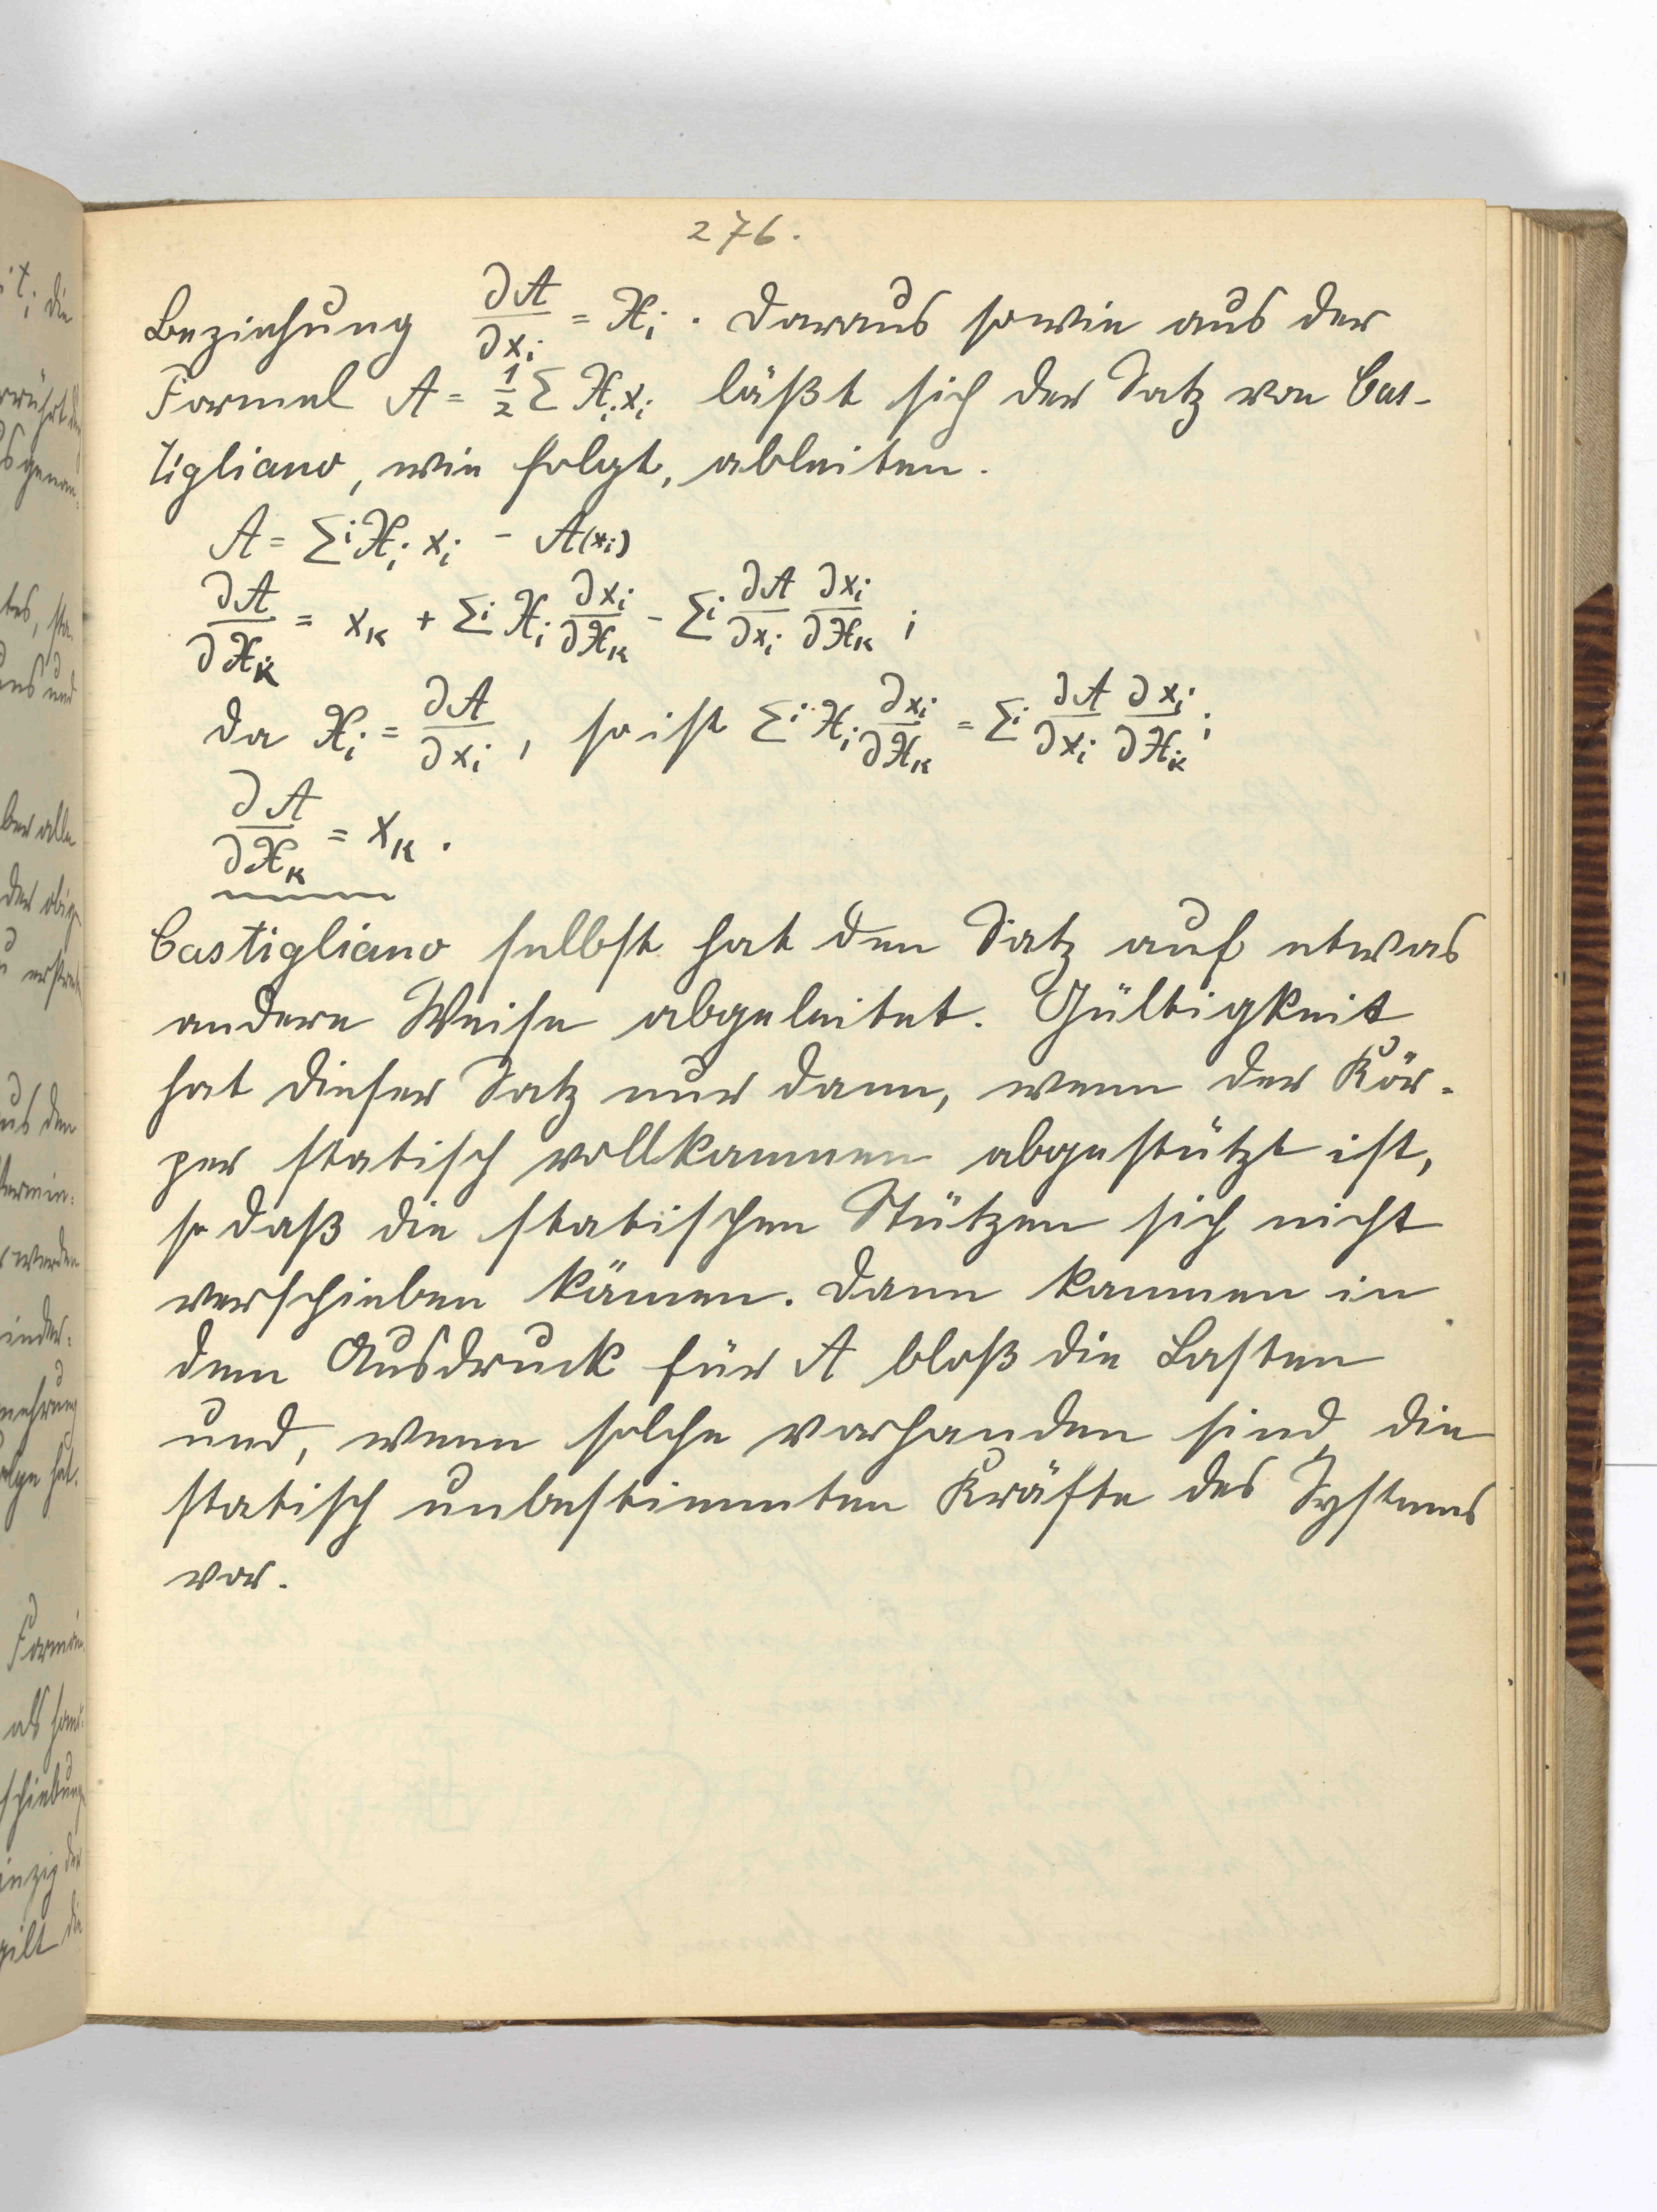 276.
Beziehung ∂A/∂xᵢ = Xᵢ. Daraus sowie aus der
Formel A = ½ Σ Xᵢxᵢ läßt sich der Satz von Cas-
tigliano, wie folgt, ableiten.
A = Σⁱ Xᵢ xᵢ - A(xᵢ)
∂A/∂Xₖ = xₖ + Σⁱ Xᵢ ∂xᵢ/∂Xₖ - Σⁱ ∂A/∂xᵢ ∂xᵢ/∂Xₖ ;
da Xᵢ = ∂A/∂xᵢ, so ist Σⁱ Xᵢ ∂xᵢ/∂Xₖ = Σⁱ ∂A/∂xᵢ ∂xᵢ/∂Xₖ ;
∂A/∂Xₖ = xₖ.
Castigliano selbst hat den Satz auf etwas
andere Weise abgeleitet. Gültigkeit
hat dieser Satz nur dann, wenn der Kör-
per statisch vollkommen abgestützt ist,
so daß die statischen Stützen sich nicht
verschieben können. Dann kommen in
dem Ausdruck für A bloß die Lasten
und, wenn solche vorhanden sind, die
statisch unbestimmten Kräfte des Systems
vor.